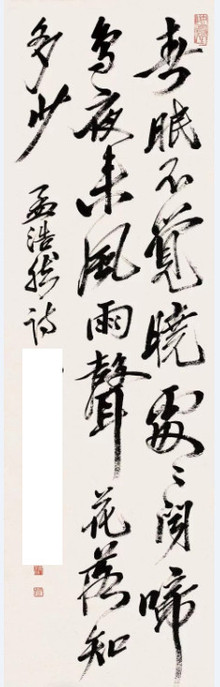 春眠不覺曉處〻聞啼
鳥夜来風雨聲花落知
多少
孟浩然詩